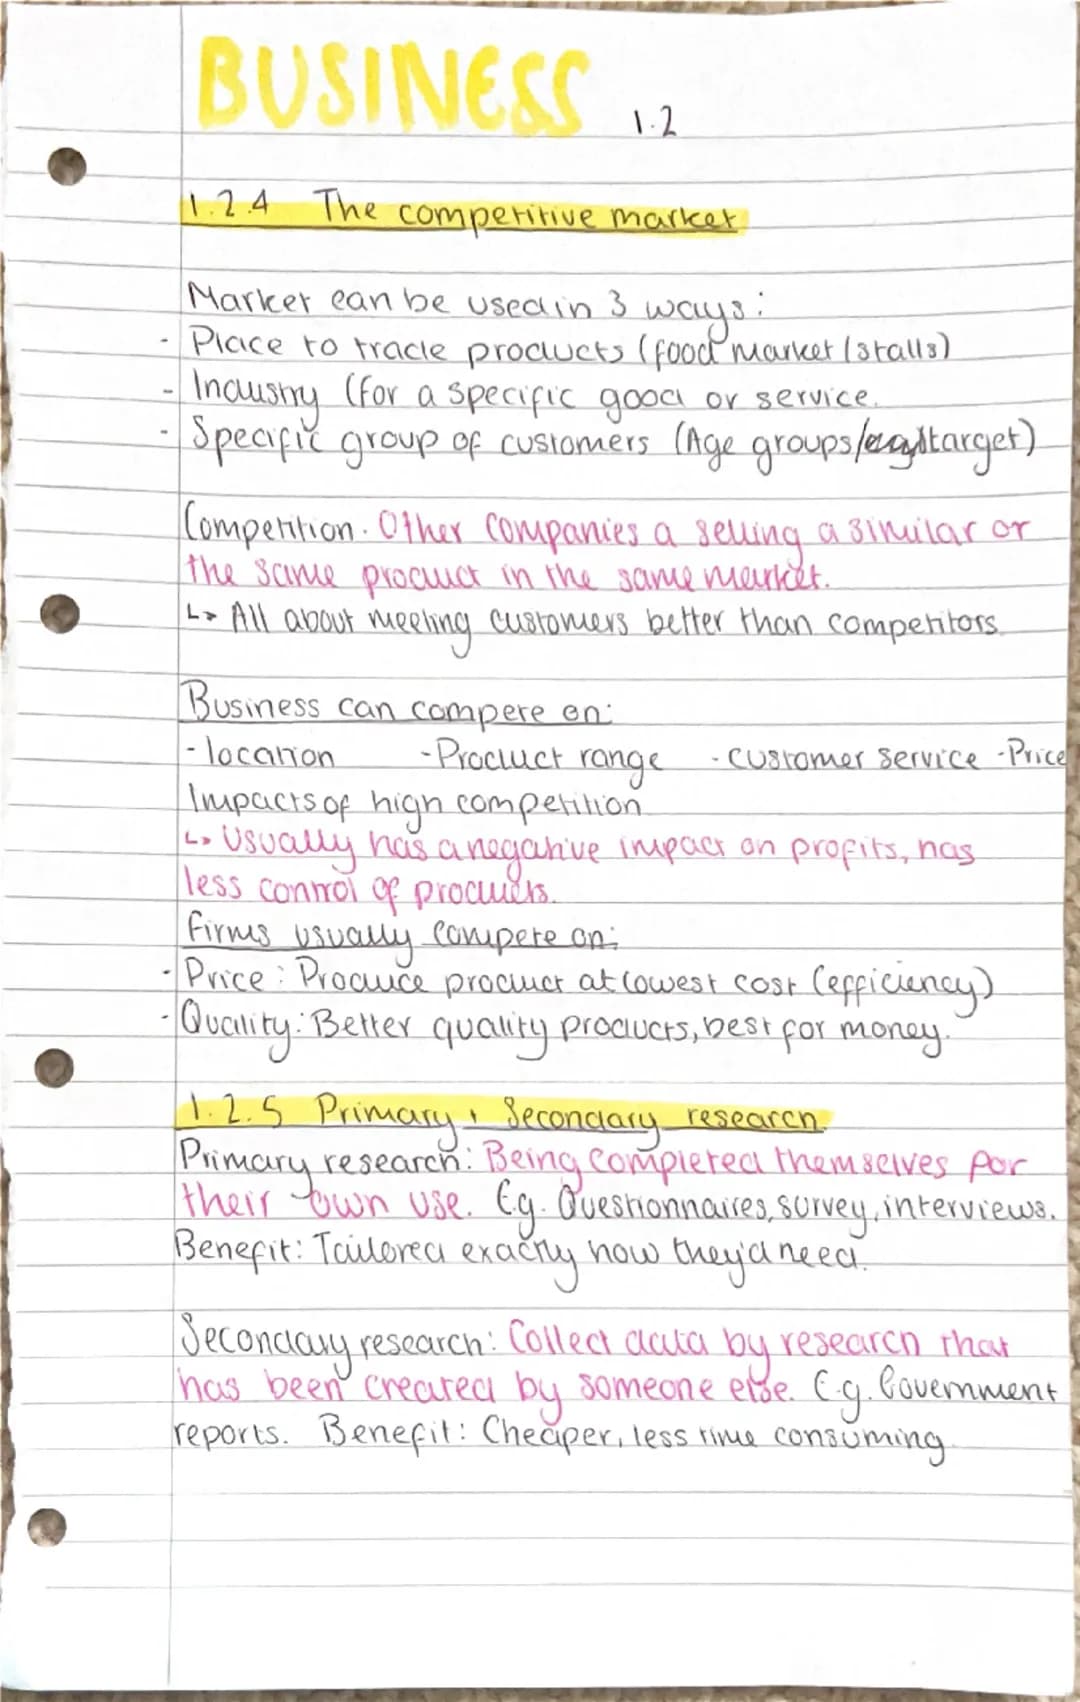 BUSINESS 1.2
1.2.4 The competitive market
Market can be used in 3 ways:
- Place to trade products (food market/stalls)
- Industry (for a specific good or service.
- Specific group of customers (Age groups/target)
Competition. Other companies a selling a similar or
the same product in the same market.
↳ All about meeting customers better than competitors
Business can compete on:
- location - Product range - customer service - Price
Impacts of high competition
↳ Usually has a negative impact on profits, has
less control of products.
Firms usually compete on:
- Price: Produce product at lowest cost (efficiency)
- Quality: Better quality products, best for money.
1.2.5 Primary, Secondary research.
Primary research: Being completed themselves for
their own use. E.g. Questionnaires, survey, interviews.
Benefit: Tailored exactly how they'd need.
Secondary research: Collect data by research that
has been created by someone else. E.g. Government
reports. Benefit: Cheaper, less time consuming.